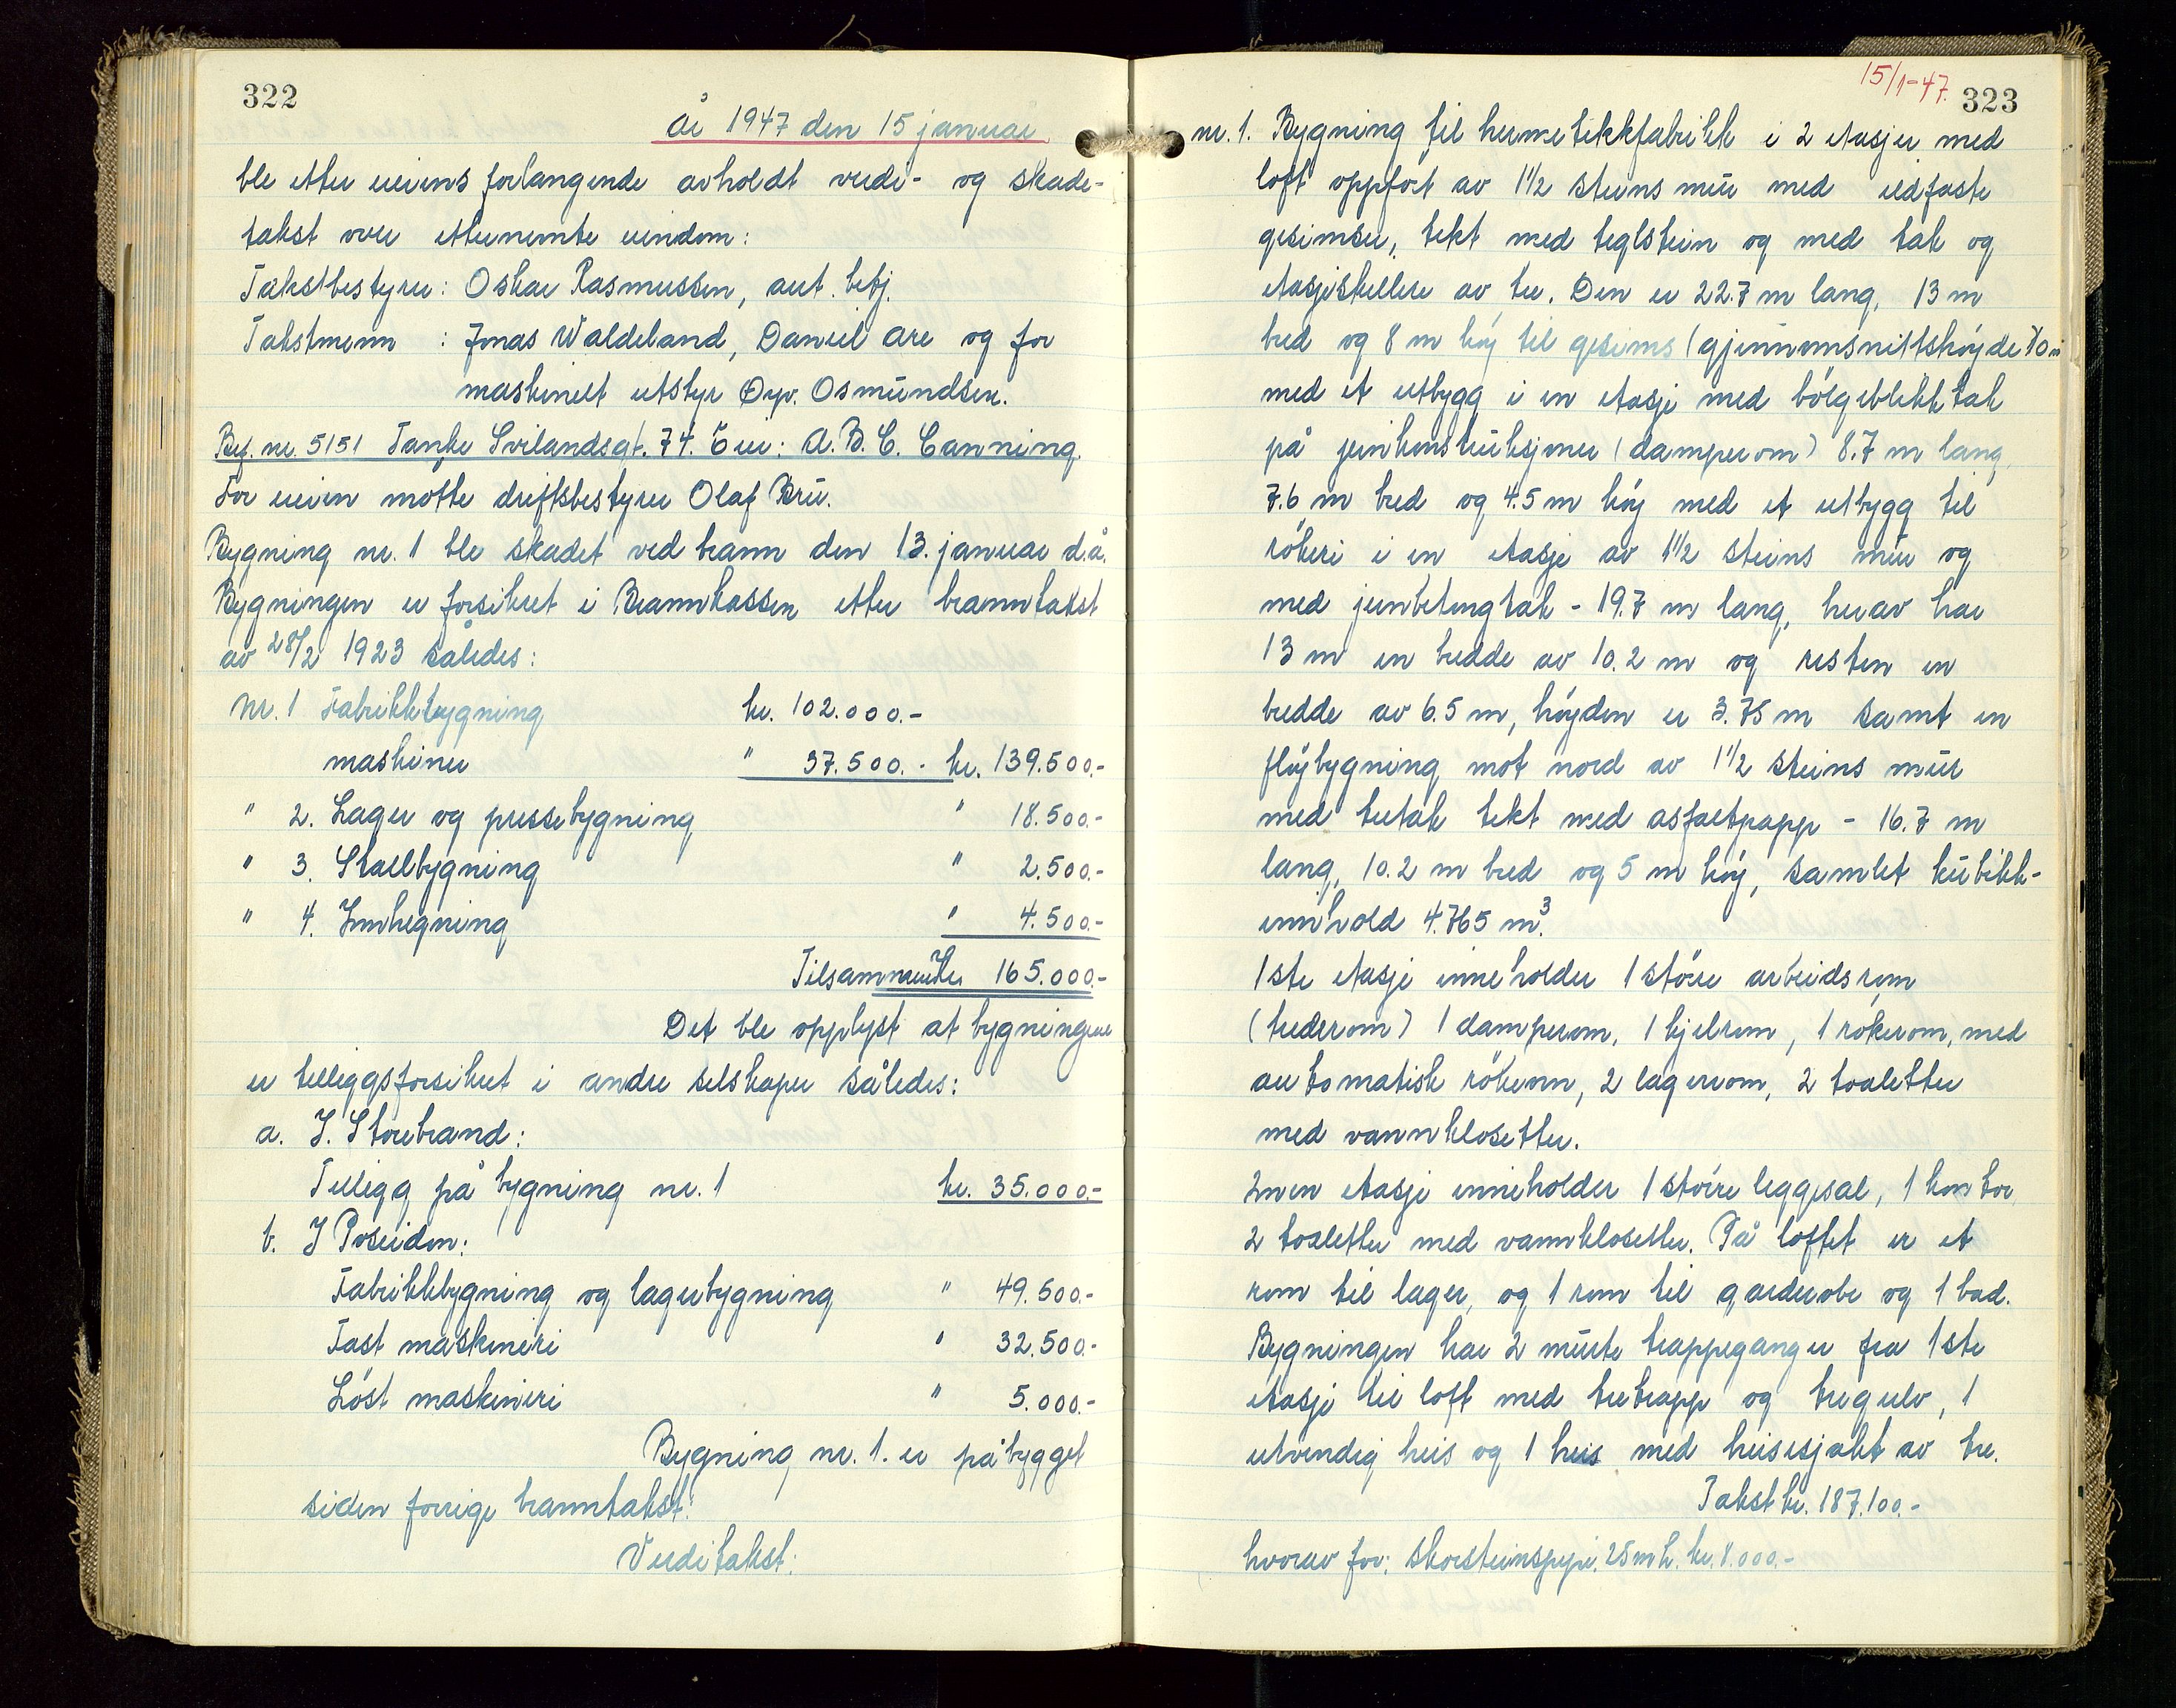 322
År 1947 den 15 januar
ble etter eierens forlangende avholdt verdi- og skade-
takst over etternevnte eiendom:
Takstbestyrer: Oskar Rasmussen, aut. betj.
Takstmenn : Jonas Waldeland, Daniel Are og for
maskinelt utstyr Øyv. Osmundsen.
Bef. nr. 5151 Tanke Svilandsgt. 74. Eier: A.B.C. Canning.
For eieren møtte driftsbestyrer Olaf Bru.
Bygning nr. 1 ble skadet ved brann den 13. januar d.å.
Bygningen er forsikret i Brannkassen etter branntakst
av 28/2 1923 således:
Nr. 1 Fabrikkbygning kr. 102.000.-
maskiner " 37.500.- kr. 139.500.-
" 2. Lager og pressebygning " 18.500.-
" 3. Stallbygning " 2.500.-
" 4. Innhegning " 4.500.-
Tilsammen kr. 165.000.-
Det ble opplyst at bygningene
er tilleggsforsikret i andre selskaper således:
a. I. Storebrand:
Tillegg på bygning nr. 1 kr. 35.000.-
b. I Poseidon:
Fabrikkbygning og lagerbygning " 49.500.-
Fast maskineri " 32.500.-
Løst maskineri " 5.000.-
Bygning nr. 1. er påbygget
siden forrige branntakst.
Verditakst:
15/1-47. 323
nr. 1. Bygning til hermetikkfabrikk i 2 etasjer med
loft oppført av 1 1/2 steins mur med ildfaste
gesimser, tekt med teglstein og med tak og
etasjeskillere av tre. Den er 22.7 m lang, 13 m
bred og 8 m høy til gesims (gjennomsnittshøyde 10 m
med et utbygg i en etasje med bølgeblikktak
på jernkonstruksjoner (damperom) 8.7 m lang,
7.6 m bred og 4.5 m høy med et utbygg til
røkeri i en etasje av 1 1/2 steins mur og
med jernbetongtak - 19.7 m lang, herav har
13 m en bredde av 10.2 m og resten en
bredde av 6.5 m, høyden er 3.75 m samt en
fløybygning mot nord av 1 1/2 steins mur
med tretak tekt med asfaltpapp - 16.7 m
lang, 10.2 m bred og 5 m høy, samlet kubikk-
innhold 4.765 m³.
1ste etasje inneholder 1 større arbeidsrom
(trederom) 1 damperom, 1 kjelrom, 1 røkerom, med
automatisk røkeovn, 2 lagerrom, 2 toaletter
med vannklosetter.
2nen etasje inneholder 1 større leggesal, 1 kontor
2 toaletter med vannklosetter. På loftet er et
rom til lager, og 1 rom til garderobe og 1 bad.
Bygningen har 2 murte trappeganger fra 1ste
etasje til loft med tretrapp og tregulv, 1
utvendig heis og 1 heis med heisesjakt av tre.
Takst kr. 187.100.-
hvorav for: skorsteinspipe. 25 m h. kr. 8.000.-